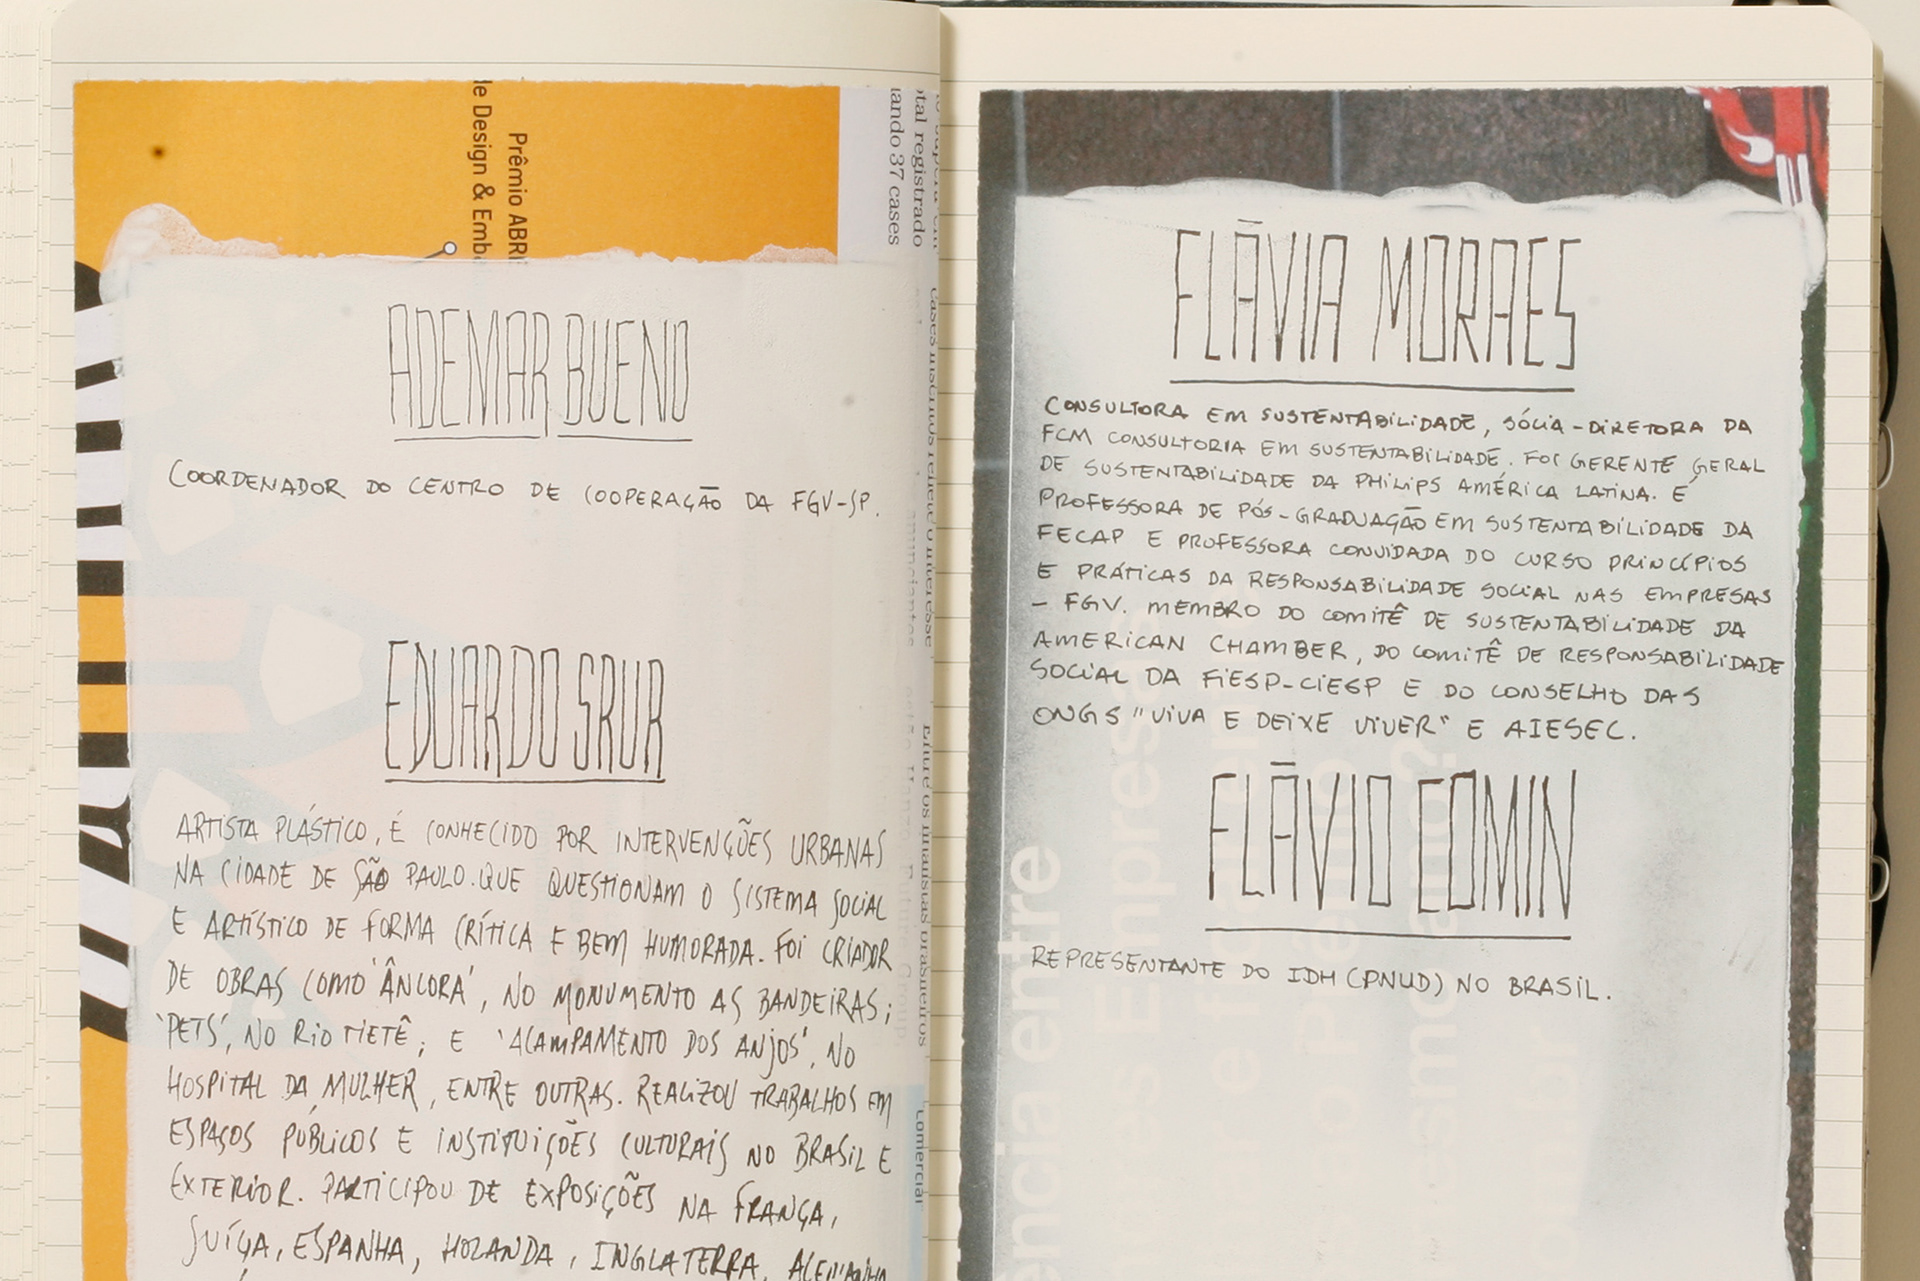 Prêmio ABR
de Design & Emb
otal registrado
ando 37 cases
ADEMAR BUENO
COORDENADOR DO CENTRO DE COOPERAÇÃO DA FGV-SP.
EDUARDO SRUR
ARTISTA PLÁSTICO, É CONHECIDO POR INTERVENÇÕES URBANAS
NA CIDADE DE SÃO PAULO. QUE QUESTIONAM O SISTEMA SOCIAL
E ARTÍSTICO DE FORMA CRÍTICA E BEM HUMORADA. FOI CRIADOR
DE OBRAS COMO 'ÂNCORA', NO MONUMENTO AS BANDEIRAS;
'PETS', NO RIO TIETÊ; E 'ACAMPAMENTO DOS ANJOS', NO
HOSPITAL DA MULHER, ENTRE OUTRAS. REALIZOU TRABALHOS EM
ESPAÇOS PÚBLICOS E INSTITUIÇÕES CULTURAIS NO BRASIL E
EXTERIOR. PARTICIPOU DE EXPOSIÇÕES NA FRANÇA,
SUÍÇA, ESPANHA, HOLANDA, INGLATERRA, ALEMANHA
"Comercial
FLÁVIA MORAES
CONSULTORA EM SUSTENTABILIDADE, SÓCIA-DIRETORA DA
FCM CONSULTORIA EM SUSTENTABILIDADE. FOI GERENTE GERAL
DE SUSTENTABILIDADE DA PHILIPS AMÉRICA LATINA. É
PROFESSORA DE PÓS-GRADUAÇÃO EM SUSTENTABILIDADE DA
FECAP E PROFESSORA CONVIDADA DO CURSO PRINCÍPIOS
E PRÁTICAS DA RESPONSABILIDADE SOCIAL NAS EMPRESAS
- FGV. MEMBRO DO COMITÊ DE SUSTENTABILIDADE DA
AMERICAN CHAMBER, DO COMITÊ DE RESPONSABILIDADE
SOCIAL DA FIESP-CIESP E DO CONSELHO DAS
ONGS "VIVA E DEIXE VIVER" E AIESEC.
FLÁVIO COMIN
REPRESENTANTE DO IDH (PNUD) NO BRASIL.
ência entre
es Empresas